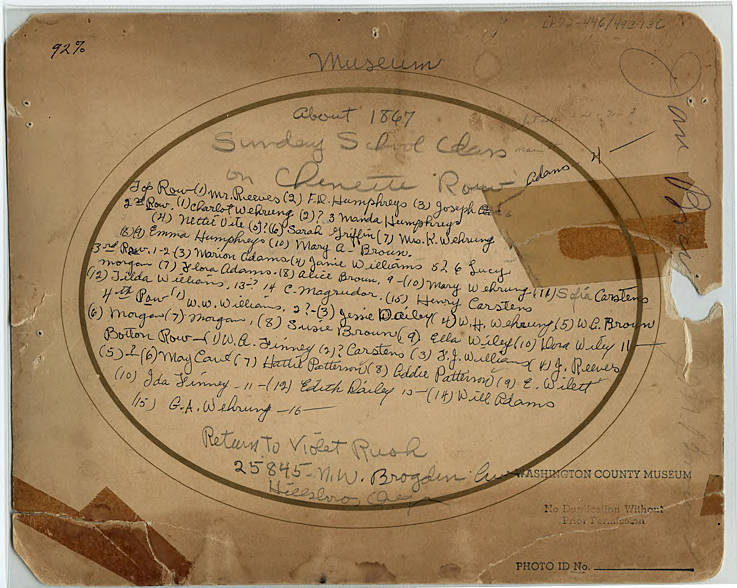 92%
Museum
About 1867
Sunday School Class
on Chenette Row
Top Row (1) Mr. Reeves (2) F.R. Humphreys (3) Joseph Adams - 4 —
2nd Row. (1) Charlot Wehrung (2)? 3 Manda Humphreys
(4) Nettie Vite (5)? (6) Sarah Griffin (7) Mrs. K. Wehrung
(8)(9) Emma Humphreys (10) Mary A- Brown.
3rd Row. 1-2-(3) Marion Adams (4) Janie Williams 5 & 6 Lucy
Morgan (7) Flora Adams. (8) Alice Brown, 9-(10) Mary Wehrung (11) Sofia Carstens
(12) Tilda Williams, 13-? 14 C. Magruder. (15) Henry Carstens
4-th Row (1) W.W. Williams, 2?-(3) Jessie Dailey (4) W.H. Wehrung (5) W.C. Brown
(6) Morgan (7) Morgan, (8) Susie Brown (9) Ella Wiley (10) Dora Wiley 11—
Botton Row—(1) W.A. Finney (2)? Carstens (3) F.J. Williams (4) J. Reeves
(5)-? (6) May Cave (7) Hattie Patterson (8) Eddie Patterson (9) E. Wilett
(10) Ida Finney - 11-(12) Edith Dailey 13-(14) Will Adams
(15) G.A. Wehrung -16—
Return to Violet Rush
25845- N.W. Brogden
Hillsboro,
WASHINGTON COUNTY MUSEUM
No Duplication Without
Prior Permission
PHOTO ID No.